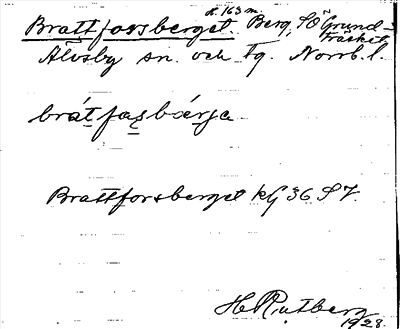 Brattforsberget. h. 163 m. Berg, SO Grund-
träsket.
Älvsby sn. och tg. Norrb. l.
bráttfas̱bǽrja
Brattforsberget kg 36 S 7.
H Rutberg
1928.